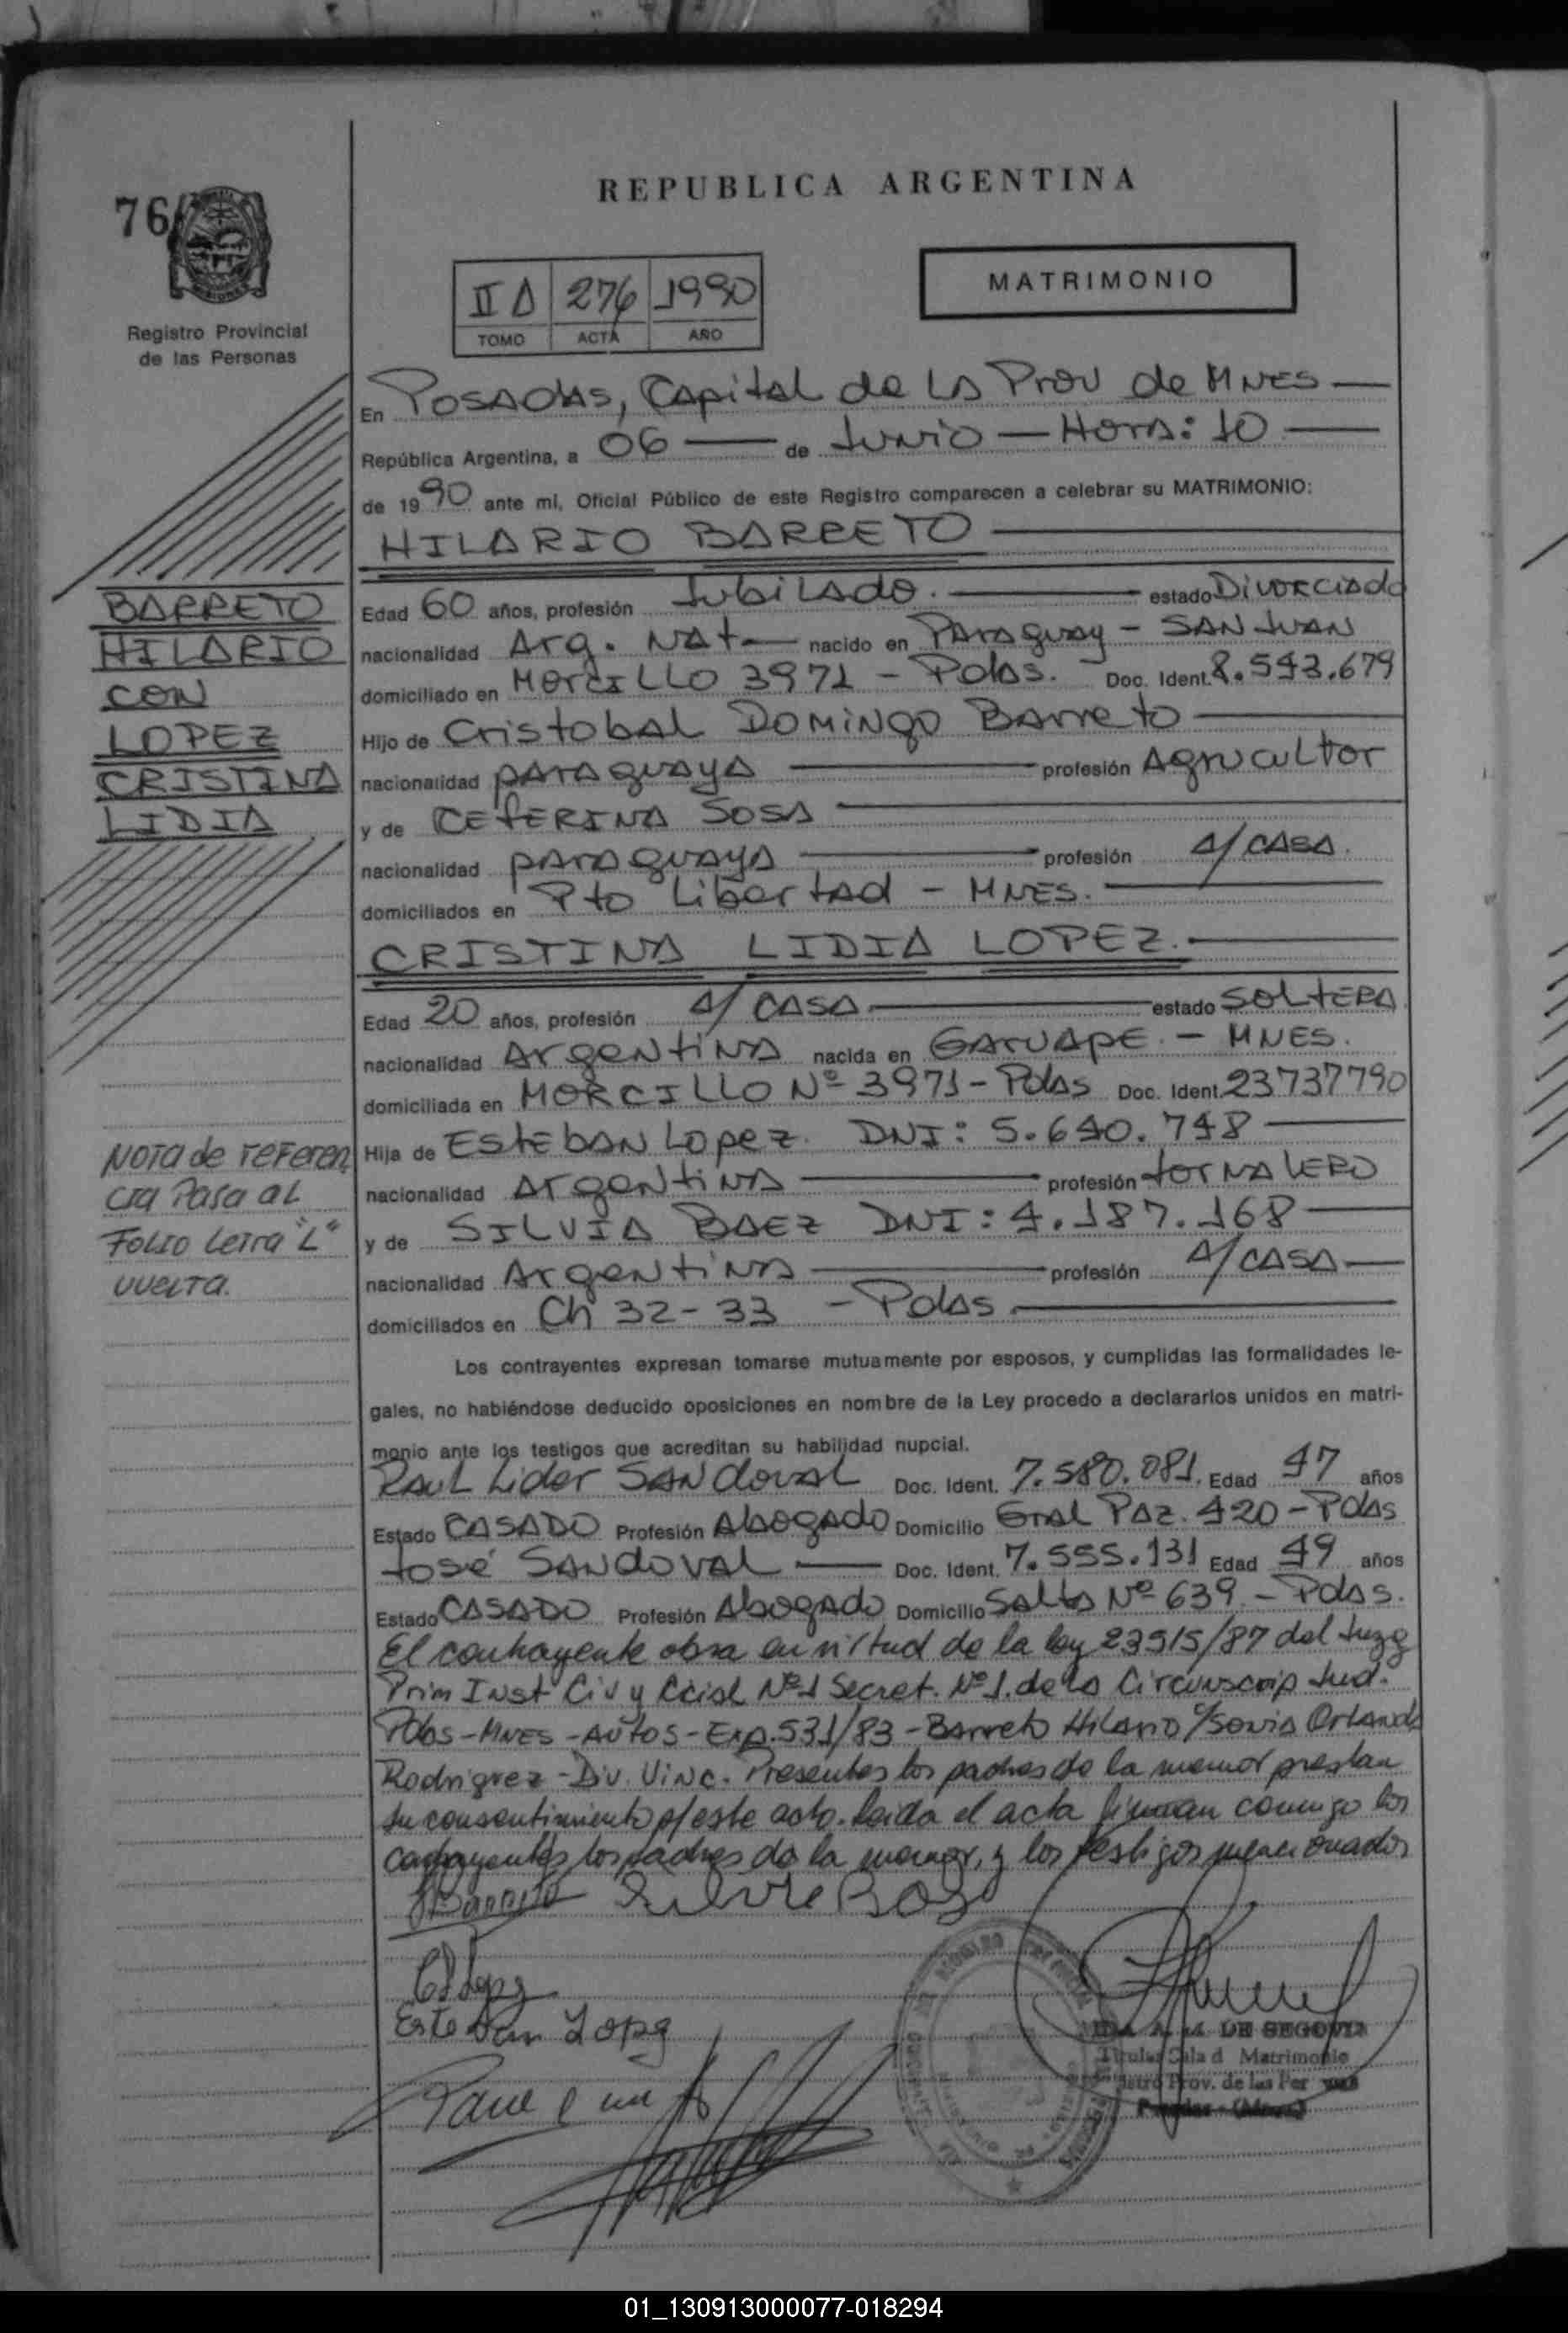 76
REPUBLICA ARGENTINA
MATRIMONIO
II A 276 1990
TOMO ACTA AÑO
Registro Provincial
de las Personas
En Posadas, Capital de la Prov de Mnes
República Argentina, a 06 de Junio - Hora: 10
de 1990 ante mi, Oficial Público de este Registro comparecen a celebrar su MATRIMONIO:
HILARIO BARRETO
BARRETO
HILARIO
CON
LOPEZ
CRISTINA
LIDIA
Edad 60 años, profesión Jubilado. estado Divorciado
nacionalidad Arg. Nat nacido en Paraguay - San Juan
domiciliado en Morcillo 3971 - Pdas. Doc. Ident. 8.543.679
Hijo de Cristobal Domingo Barreto
nacionalidad paraguaya profesión Agricultor
y de Ceferina Sosa
nacionalidad paraguaya profesión A/ casa.
domiciliados en Pto Libertad - Mnes.
CRISTINA LIDIA LOPEZ.
Edad 20 años, profesión A/ casa estado Soltera
nacionalidad Argentina nacida en Garuape. - Mnes.
domiciliada en Morcillo Nº 3971 - Pdas Doc. Ident. 23737790
Hija de Esteban Lopez. DNI: 5.640.748
nacionalidad Argentina profesión Jornalero
y de Silvia Baez DNI: 4.187.168
nacionalidad Argentina profesión A/ casa
domiciliados en Ch 32-33 - Pdas
Nota de referen
cia Pasa al
Folio Letra "L"
vuelta.
Los contrayentes expresan tomarse mutuamente por esposos, y cumplidas las formalidades le-
gales, no habiéndose deducido oposiciones en nombre de la Ley procedo a declararlos unidos en matri-
monio ante los testigos que acreditan su habilidad nupcial.
Raul Lider Sandoval Doc. Ident. 7.580.081. Edad 47 años
Estado Casado Profesión Abogado Domicilio Gral Paz. 420 - Pdas
José Sandoval Doc. Ident. 7.555.131 Edad 49 años
Estado Casado Profesión Abogado Domicilio Salta Nº 639. - Pdas.
El contrayente obra en virtud de la ley 23515/87 del Juzg
Prim Inst Civ y Ccial Nº1 Secret. Nº1. de la Circunscrip Jud.
Pdas - Mnes - Autos - Exp. 531/83 - Barreto Hilario c/Sonia Orlanda
Rodriguez - Div. Vinc. Presentes los padres de la menor prestan
su consentimiento p/este acto. Leida el acta firman conmigo los
contrayentes los padres de la menor, y los testigos mencionados
HBarreto Silvia Baez
CLopez
Esteban Lopez
A. M. DE SEGOVIA
Titular Sala d Matrimonio
Prov. de las Per
01_130913000077-018294